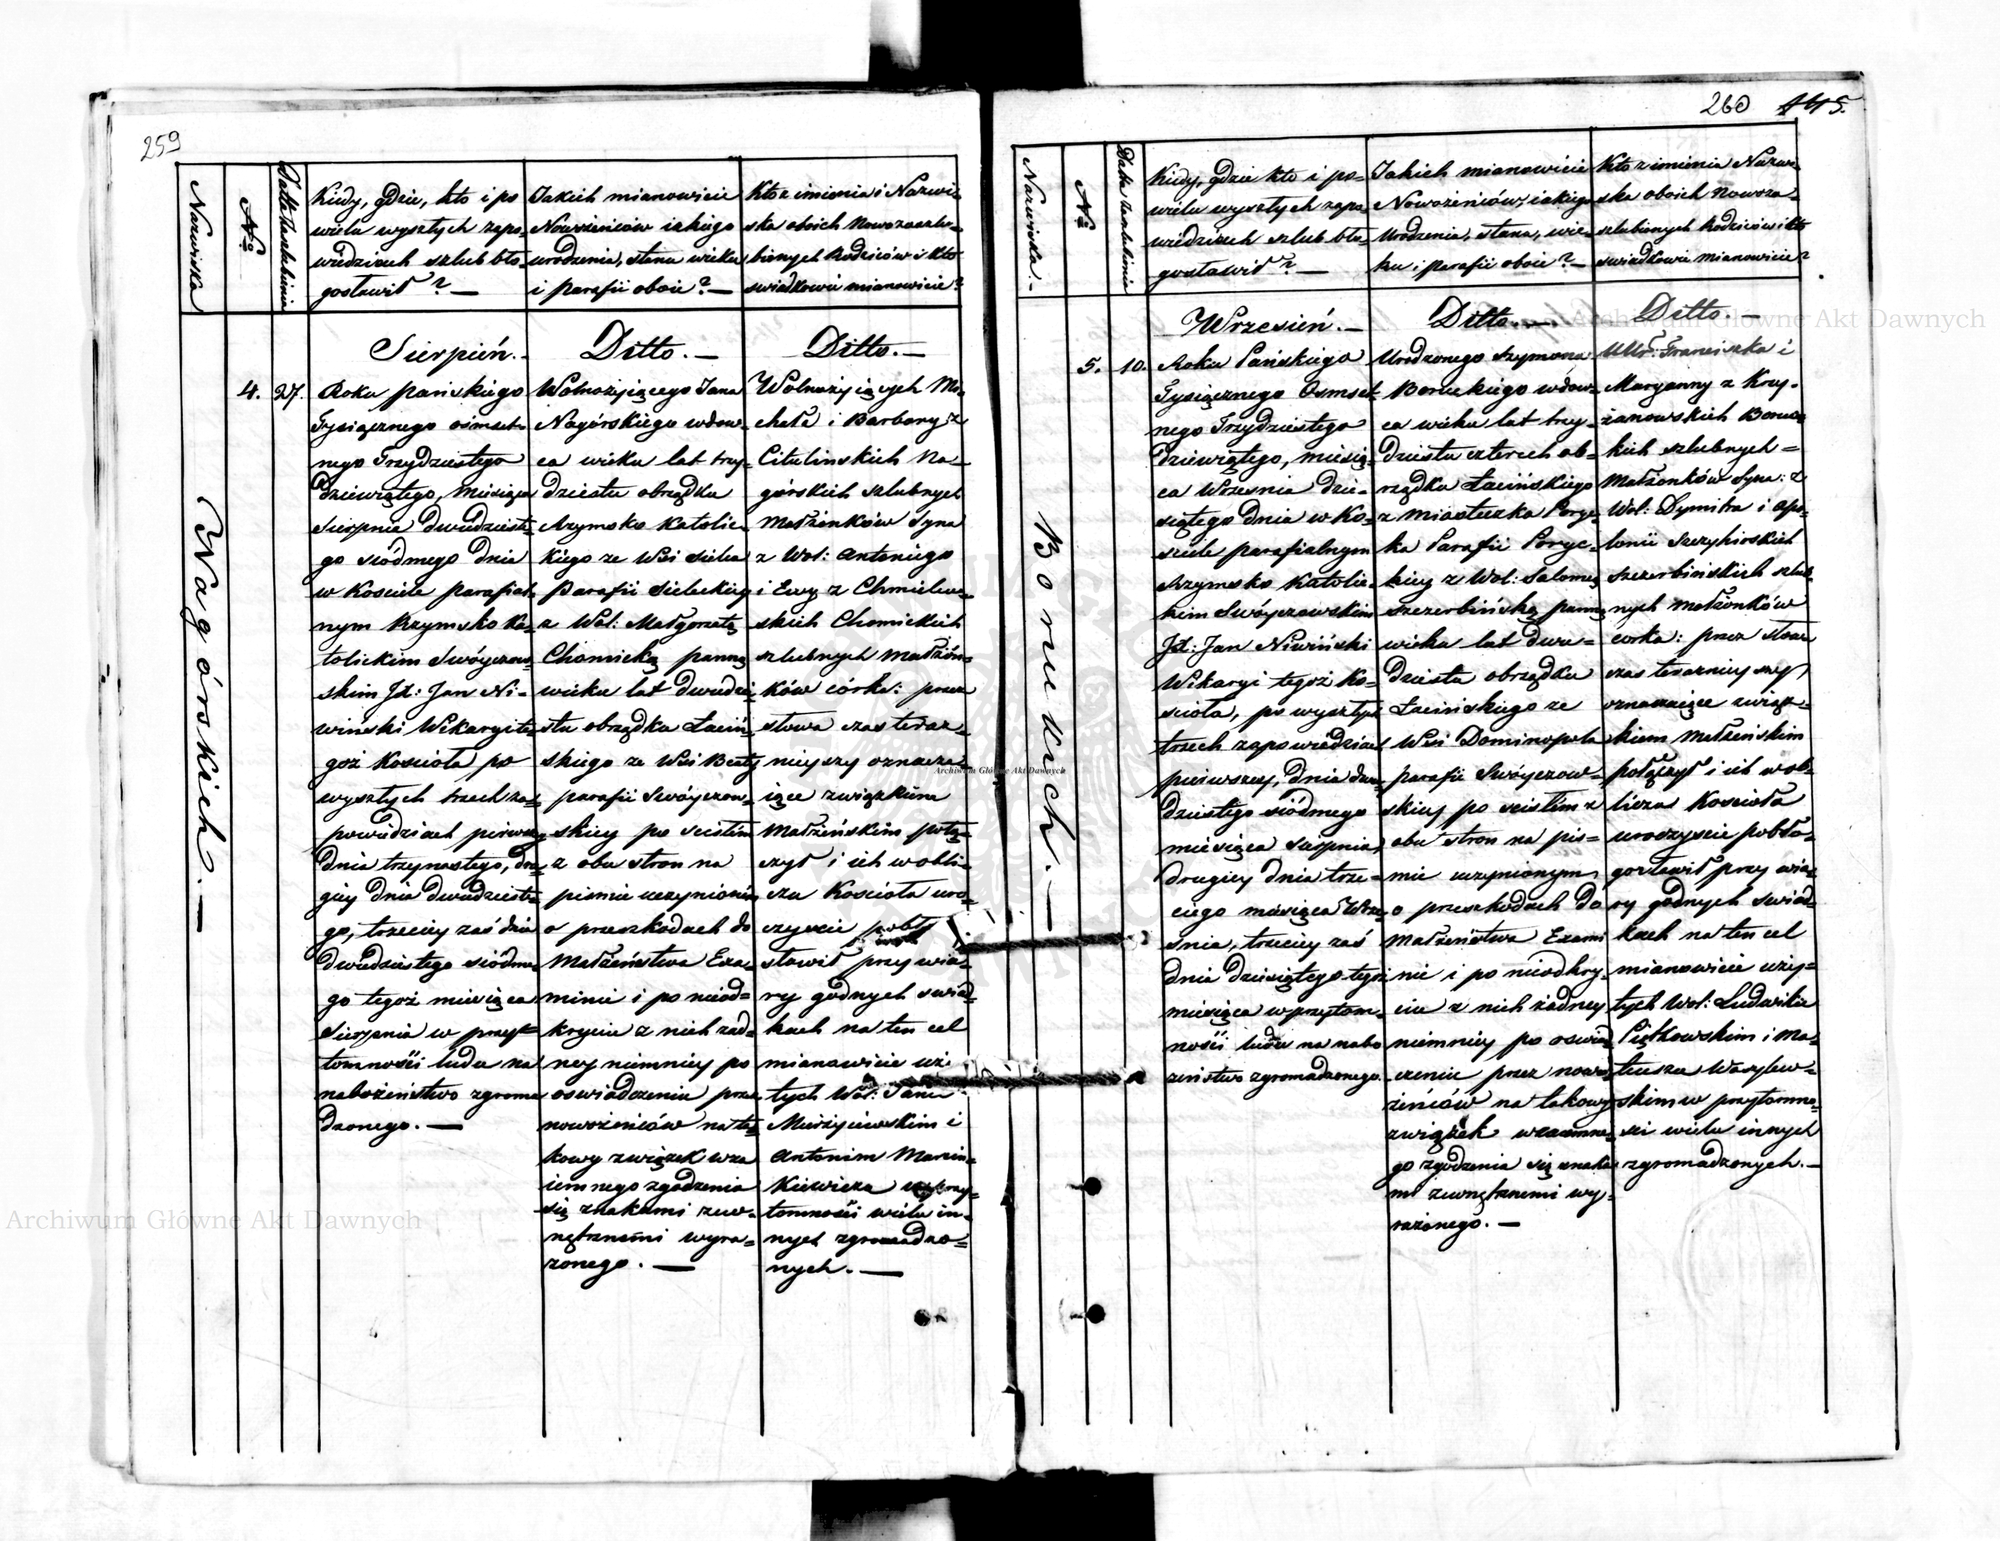 259
Nazwiska
No
Datta zaslubienia
Kiedy, gdzie, kto i po
wielu wyszłych zapo=
wiedziach szlub bło=
gosławił? —
Jakich mianowicie
Nowożeniców iakiego
urodzenia, stanu wieku
i parafii oboie? —
Kto z imienia i Nazwi=
ska oboich Nowozaszlu=
bionych Rodziców i kto
swiadkowie mianowicie?
Wagórskich. —
Sierpień. —
4. 27.
Roku pańskiego
Tysiącznego ośmset=
nego Trzydziestego
Dziewiątego, Miesiąca
Sierpnia dwudzieste=
go siódmego dnia
w Kosciele parafial=
nym Rzymsko Ka=
tolickim Swóyczow=
skim Jx: Jan Ni=
wiński Wikaryi te=
goż Kościoła po
wyszłych trzech za=
powiedziach pierwszey
dnia trzynastego, dru=
giey dnia dwudzieste=
go, trzeciey zaś dnia
Dwudziestego siódme=
go tegoż miesiąca
Sierpnia w przy=
tomności ludu na
nabożeństwo zgroma
dzonego. —
Ditto. —
Wolnożyiącego Jana
Nagórskiego wdow=
ca wieku lat trzy=
dziestu obrządku
Rzymsko Katolic=
kiego ze Wsi Sielca
Parafii Sieleckiey
z Wol: Małgorzatą
Chomicką panną
wieku lat dwudzie=
stu obrządku Łaciń=
skiego ze Wsi
parafii Swóyczow=
skiey po scisłém
z obu stron na
piśmie uczynioném
o przeszkodach do
Małżeństwa Exa=
minie i po nieod=
kryciu z nich żad=
ney niemniey po
oswiadczeniu przez
nowożeniców na ta=
kowy związek wza
iemnego zgodzenia
się znakami zew=
nętrznemi wyra=
żonego. —
Ditto. —
Wolnożyiących Mi=
chała i Barbary z
Citulinskich Na=
górskich szlubnych
Małżonków Syna
z Wol: Antoniego
i Ewy z Chmielew=
skich Chomickich
szlubnych Małżon=
ków córką: przez
słowa czas teraz=
nieyszy oznacza=
iące związkiem
Małżeńskim połą=
czył i ich w obli=
czu Kościoła uro=
czyscie pobło
sławił przy wia=
ry godnych swiad=
kach na ten cel
mianowicie uży=
tych Wol: Janie
i
Antonim Marcin=
kiewicza w przy=
tomności wielu in=
nych zgromadzo=
nych. —
260 445.
Nazwiska. —
No
Datta zaszlubienia
Kiedy, gdzie kto i po=
wielu wyszłych zapo=
wiedziach szlub bło=
gosławił? —
Jakich mianowicie
Nowożeniców, iakiego
Urodzenia, stanu, wie=
ku i parafii oboie? —
Kto z imienia Nazwi=
ska oboich Nowoza=
szlubionych Rodziców i kto
swiadkowie mianowicie?
Boruckich. —
Wrzesień. —
5. 10.
Roku Pańskiego
Tysiącznego Osmset=
nego Trzydziestego
Dziewiątego, miesią=
ca Wrzesnia dzie=
siątego dnia w Ko=
sciele parafialnym
Rzymsko Katolic=
kim Swóyczowskim
Jx: Jan Niwiński
Wikaryi tegoż Ko=
scioła, po wyszłych
trzech zapowiedziach
pierwszey, dnia dwu=
dziestego siódmego
miesiąca sierpnia,
drugiey dnia trze=
ciego miesiąca Wrze=
snia, trzeciey zaś
dnia dziesiątego tegoż
miesiąca w przytom=
ności ludu na nabo
żeństwo zgromadzonego.
Ditto. —
Urodzonego Szymona
Boruckiego wdow=
ca wieku lat trzy=
dziestu czterech ob=
rządku Łacińskiego
z Miasteczka Pory=
ka Parafii Poryc=
kiey z Wol: Salomeą
Szczerbińską panną
wieku lat dwu=
dziestu obrządku
Łacińskiego ze
Wsi Dominopola
parafii Swóyczow=
skiey po scisłém z
obu stron na piś=
mie uczynionym
o przeszkodach do
Małżeństwa Exami
nie i po nieodkry=
ciu z nich żadney
niemniey po oswiad
czeniu przez nowo=
żeniców na takowy
związek wzaiemne=
go zgodzenia się znaka
mi zewnętrznemi wy=
rażonego. —
Ditto. —
UUr: Franciszka i
Maryanny z Krzy=
żanowskich Boruc=
kich szlubnych =
Małżonków Syna: z
Wol: Dymitra i Apo=
lonii
Szczerbińskich szlub=
nych Małżonków
corką: przez słowa
czas teraznieyszy
oznaczaiące związ=
kiem Małżeńskim
połączył i ich w ob=
liczu Kościoła
uroczyscie pobło=
gosławił przy wia=
ry godnych swiad=
kach na ten cel
mianowicie uży=
tych Wol: Ludwiku
Piątkowskim i Ma=
teuszu Wasylew=
skim w przytomno=
sci wielu innych
zgromadzonych. —
Archiwum Główne Akt Dawnych
Archiwum Główne Akt Dawnych
Archiwum Główne Akt Dawnych